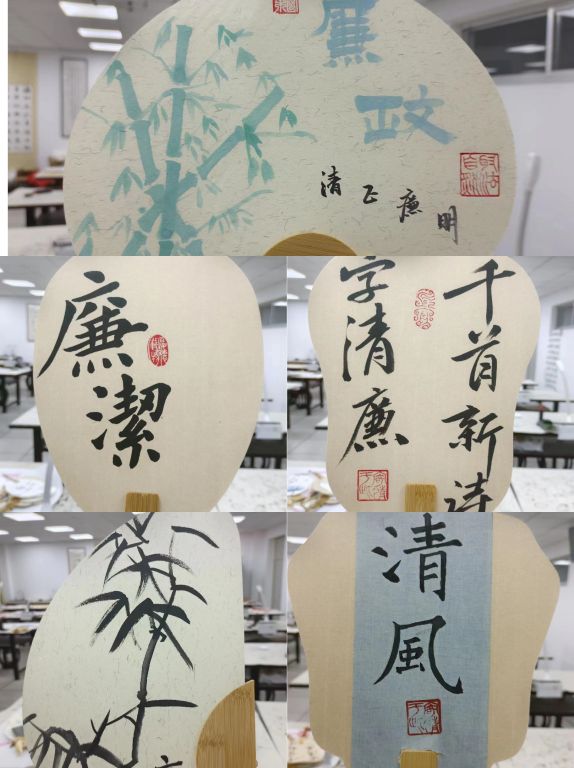 廉政
清正廉明
廉潔
千首新诗
字清廉
清風